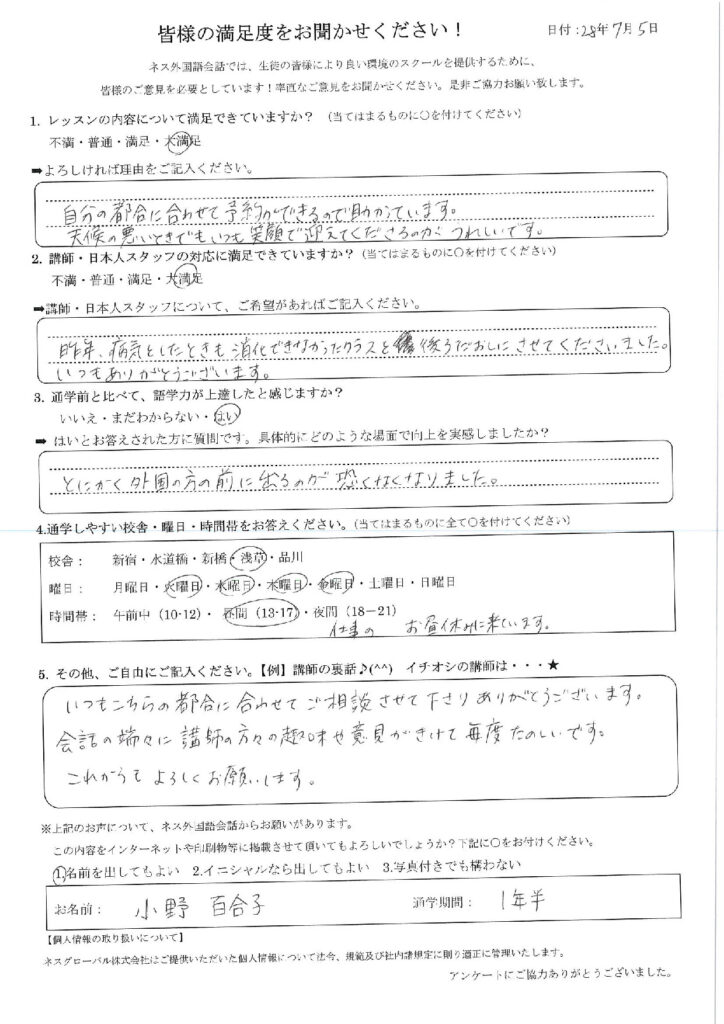 皆様の満足度をお聞かせください！
日付：28年7月5日
ネス外国語会話では、生徒の皆様により良い環境のスクールを提供するために、
皆様のご意見を必要としています！率直なご意見をお聞かせください。是非ご協力お願い致します。
1. レッスンの内容について満足できていますか？（当てはまるものに〇を付けてください）
不満・普通・満足・大満足
➡よろしければ理由をご記入ください。
自分の都合に合わせて予約ができるので助かっています。
天候の悪いときでもいつも笑顔で迎えてくださるのがうれしいです。
2. 講師・日本人スタッフの対応に満足できていますか？（当てはまるものに〇を付けてください）
不満・普通・満足・大満足
➡講師・日本人スタッフについて、ご希望があればご記入ください。
昨年、病気をしたときも消化できなかったクラスを後ろだおしにさせてくださいました。
いつもありがとうございます。
3. 通学前と比べて、語学力が上達したと感じますか？
いいえ・まだわからない・はい
➡ はいとお答えされた方に質問です。具体的にどのような場面で向上を実感しましたか？
とにかく外国の方の前に出るのが恐くなくなりました。
4.通学しやすい校舎・曜日・時間帯をお答えください。（当てはまるものに全て〇を付けてください）
校舎： 新宿・水道橋・新橋・浅草・品川
曜日： 月曜日・火曜日・水曜日・木曜日・金曜日・土曜日・日曜日
時間帯： 午前中（10-12）・ 昼間（13-17）・夜間（18－21）
仕事の お昼休みに来ています。
5. その他、ご自由にご記入ください。【例】講師の裏話♪(^^) イチオシの講師は・・・★
いつもこちらの都合に合わせてご相談させて下さりありがとうございます。
会話の端々に講師の方々の趣味や意見がきけて毎度たのしいです。
これからもよろしくお願いします。
※上記のお声について、ネス外国語会話からお願いがあります。
この内容をインターネットや印刷物等に掲載させて頂いてもよろしいでしょうか？下記に〇をお付けください。
1.名前を出してもよい 2.イニシャルなら出してもよい 3.写真付きでも構わない
お名前： 小野 百合子 通学期間： 1年半
【個人情報の取り扱いについて】
ネスグローバル株式会社はご提供いただいた個人情報について法令、規範及び社内諸規定に則り適正に管理いたします。
アンケートにご協力ありがとうございました。